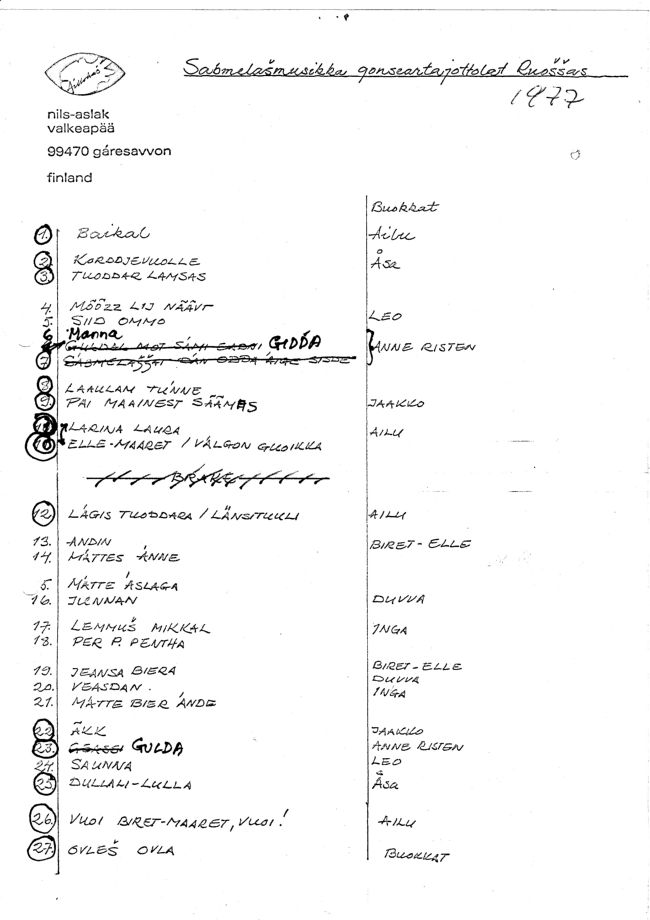 Sabmelašmusikka gonseartajottolat Ruoššas
1977
nils-aslak
valkeapää
99470 gáresavvon
finland
Buokkat
1. Baikal Ailu
2. KORDDJEVUOLLE Åsa
3. TUODDAR LAMSAS
4. MÕÕZZ LIJ NÄÄVT
5. SIID OMMO LEO
6 Manna
GIĐĐA ANNE RISTEN
7
8 LAAULAM TUNNE
9. PAI MAAINEST SÄÄMAS JAAKKO
LARINA LAURA AILU
10 ELLE-MAARET / VÄLGON GUOIKKA
12 LÁGIS TUODDARA / LÄNSITUULI AILU
13. ANDIN BIRET-ELLE
14. MÁTTES ÁNNE
5. MÁTTE ÁSLAGA
16. JUNNAN DUVVA
17. LEMMUŠ MIKKAL INGA
18. PER P. PENTHA
19. JEANSA BIERA BIRET-ELLE
20. VEASDAN. DUVVA
21. MATTE BIER ÁNDE INGA
22 ÄKK JAAKKO
23. GULDA ANNE RISTEN
24. SAUNNA LEO
25 DULLALI-LULLA Åsa
26. VUOI BIRET-MAARET, VUOI! AILU
27. OVLEŠ OVLA BUOKKAT